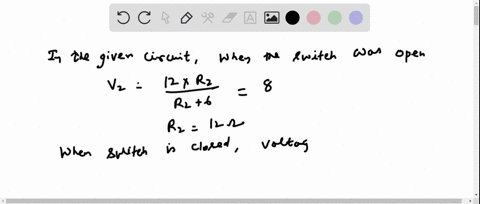 In the given circuit, when the switch was open
V2 = 12 x R2 / R2 + 6 = 8
R2 = 12 Ω
When switch is closed, voltag